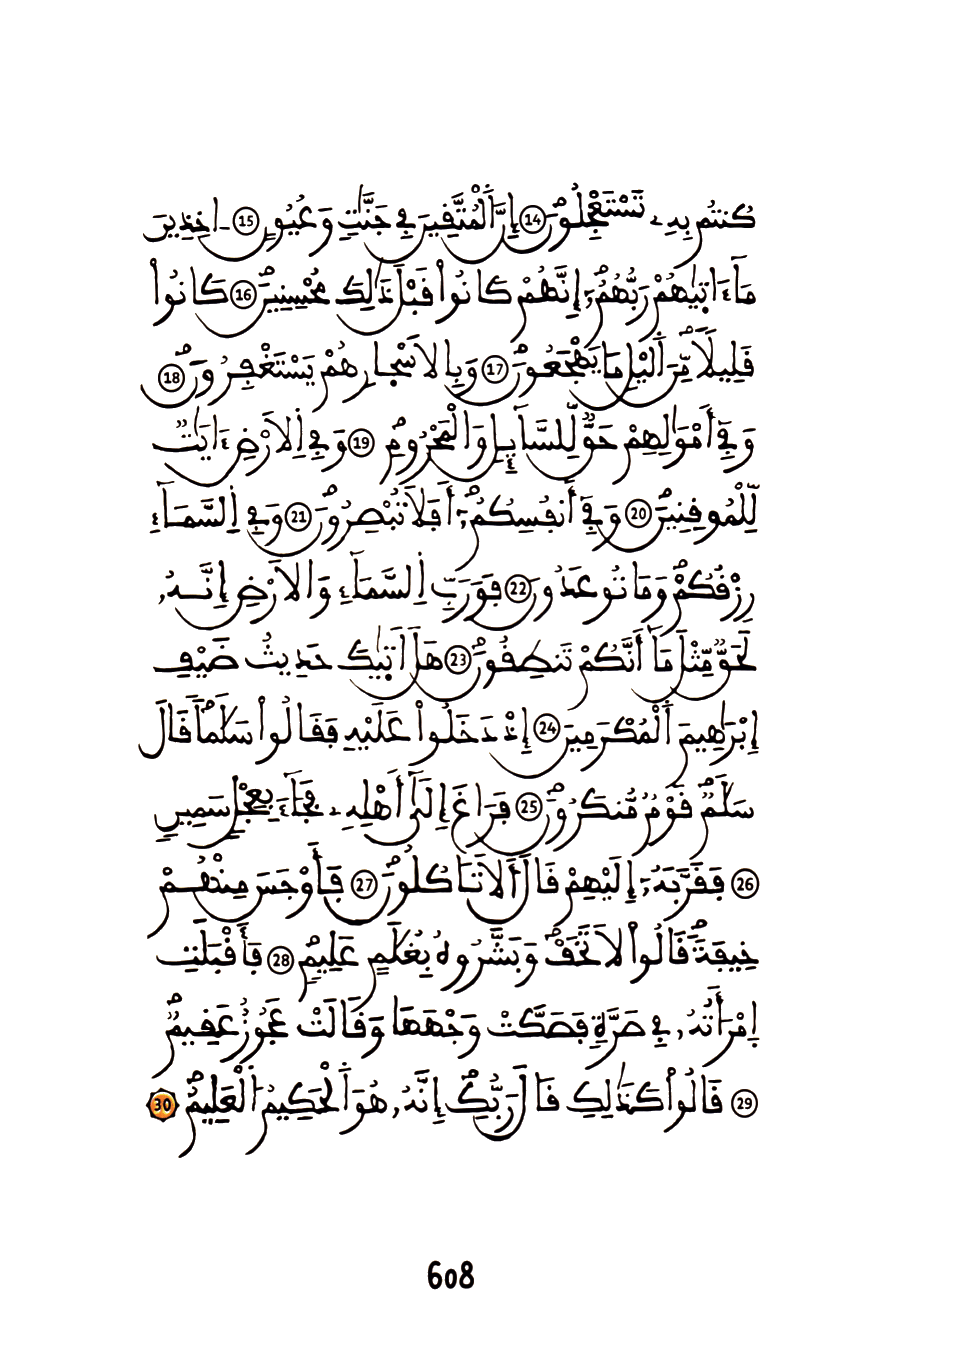 كُنتُم بِهِۦ تَسْتَعْجِلُونَ 14 إِنَّ اَ۬لْمُتَّقِينَ فِے جَنَّٰتٖ وَعُيُونٍ 15 ـ اخِذِينَ
مَآ ءَات۪يٰهُمْ رَبُّهُمُۥٓ إِنَّهُمْ كَانُواْ قَبْلَ ذَٰلِكَ مُحْسِنِينَ 16 كَانُواْ
قَلِيلاٗ مِّنَ اَ۬ليْلِ مَا يَهْجَعُونَ 17 وَبِالَاسْحِارِ هُمْ يَسْتَغْفِرُونَ 18
وَفِےٓ أَمْوَٰلِهِمْ حَقّٞ لِّلسَّآئِلِ وَالْمَحْرُومِ 19 وَفِے اِ۬لَارْضِ ءَايَٰتٞ
لِّلْمُوقِنِينَ 20 وَفِےٓ أَنفُسِكُمُۥٓ أَفَلَا تُبْصِرُونَ 21 وَفِے اِ۬لسَّمَآءِ
رِزْقُكُمْ وَمَا تُوعَدُونَ 22 فَوَرَبِّ اِ۬لسَّمَآءِ وَالَارْضِ إِنَّهُۥ
لَحَقّٞ مِّثْلَ مَآ أَنَّكُمْ تَنطِقُونَ 23 هَلَ اَت۪يٰكَ حَدِيثُ ضَيْفِ
إِبْرَٰهِيمَ اَ۬لْمُكْرَمِينَ 24 إِذْ دَخَلُواْ عَلَيْهِ فَقَالُواْ سَلَٰماٗ قَالَ
سَلَٰمٞ قَوْمٞ مُّنكَرُونَ 25 فَرَاغَ إِلَىٰٓ أَهْلِهِۦ فَجَآءَ بِعِجْلٖ سَمِينٖ
26 فَقَرَّبَهُۥٓ إِلَيْهِمْ قَالَ أَلَا تَاكُلُونَ 27 فَأَوْجَسَ مِنْهُمْ
خِيفَةٗ قَالُواْ لَا تَخَفْ وَبَشَّرُوهُ بِغُلَٰمٍ عَلِيمٖ 28 فَأَقْبَلَتِ
اِ۪مْرَأَتُهُۥ فِے صَرَّةٖ فَصَكَّتْ وَجْهَهَا وَقَالَتْ عَجُوزٌ عَقِيمٞ
29 قَالُواْ كَذَٰلِكِ قَالَ رَبُّكِ إِنَّهُۥ هُوَ اَ۬لْحَكِيمُ اُ۬لْعَلِيمُ 30
608